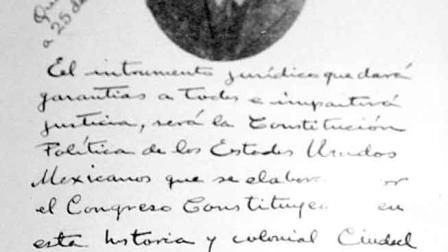 a 25 de
El intrumento jurídico que dará
garantías a todos e impartirá
justicia, será la Constitución
Política de los Estados Unidos
Mexicanos que se elabora
el Congreso Constituye en
esta historia y colonial Ciudad